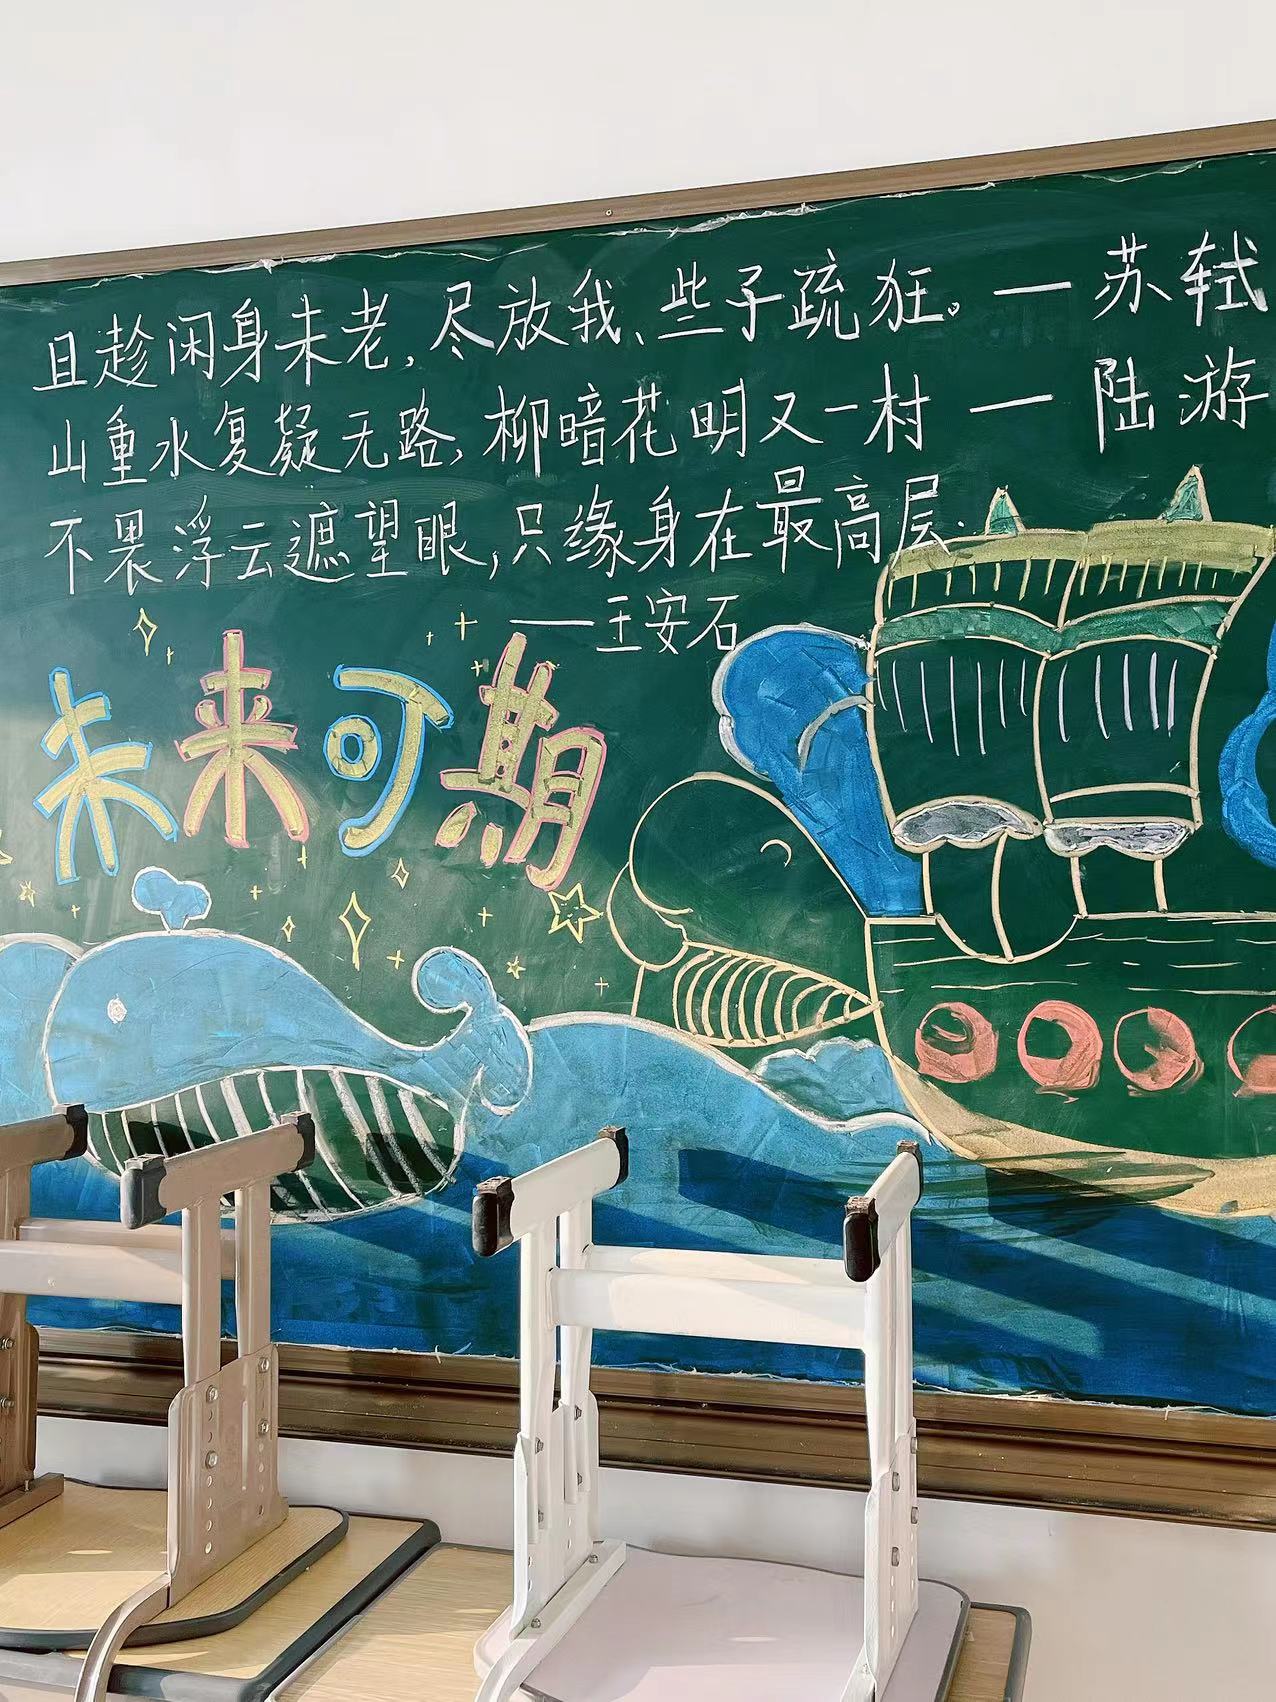 且趁闲身未老,尽放我、些子疏狂。—苏轼
山重水复疑无路,柳暗花明又一村—陆游
不畏浮云遮望眼,只缘身在最高层.
——王安石
未来可期